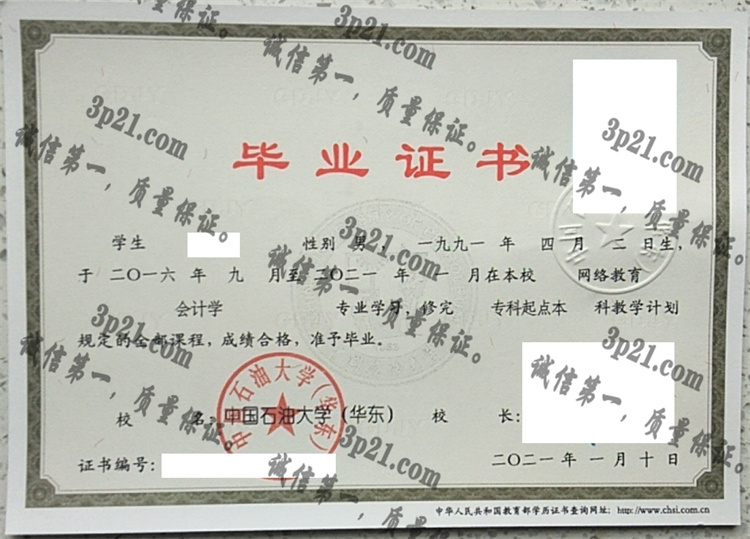 3p21.com
诚信第一，质量保证。
3p21.com
诚信第一，质量保证。
3p21.com
诚信第一，质量保证。
3p21.com
诚信第一，质量保证。
毕业证书
学生 性别 男， 一九九一 年 四 月 二 日生，
于 二〇一六 年 九 月至 二〇二一 年 一 月在本校 网络教育
会计学 专业学习，修完 专科起点本 科教学计划
规定的全部课程，成绩合格，准予毕业。
3p21.com
诚信第一，质量保证。
3p21.com
诚信第一，质量保证。
3p21.com
诚信第一，质量保证。
中国石油大学（华东）
校 名：中国石油大学（华东） 校 长：
证书编号： 二〇二一 年 一 月 十 日
3p21.com
诚信第一，质量保证。
中华人民共和国教育部学历证书查询网址：http://www.chsi.com.cn